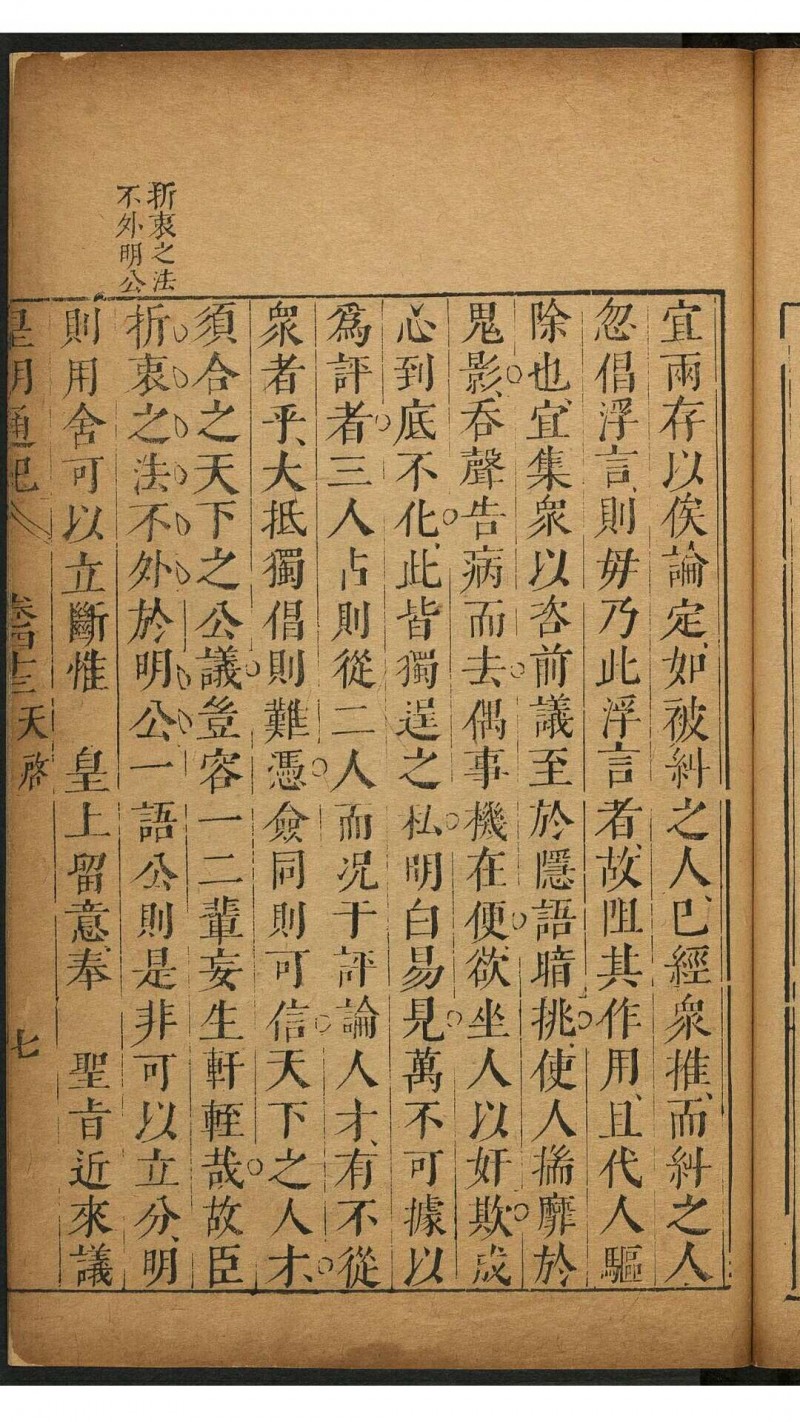 折衷之法
不外明公
宜兩存以俟論定、如被糾之人、已經衆推、而糾之人
忽倡浮言、則毋乃此浮言者、故阻其作用、且代人驅
除也、宜集衆以咨前議至於隱語暗挑、使人揣靡於
鬼影、吞聲告病而去、偶事機在便、欲坐人以奸欺、成
心到底不化、此皆獨逞之私、明白易見、萬不可據以
爲評者、三人占則從二人、而況于評論人才、有不從
衆者乎、大抵獨倡則難憑、僉同則可信、天下之人才、
須合之天下之公議、豈容一二輩妄生軒輊哉、故臣
折衷之法不外於明公一語公則是非可以立分、明
則用舍可以立斷惟　皇上留意、奉　聖旨近來議
皇明通紀
卷四十三
天啓
七